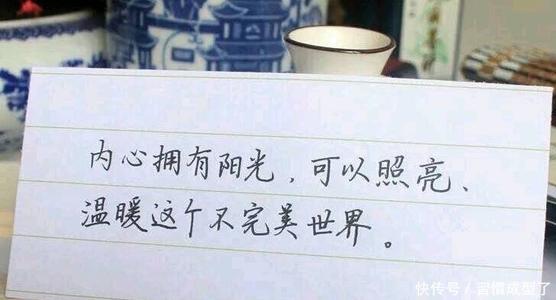 内心拥有阳光，可以照亮、
温暖这个不完美世界。
快传号／習慣成型了